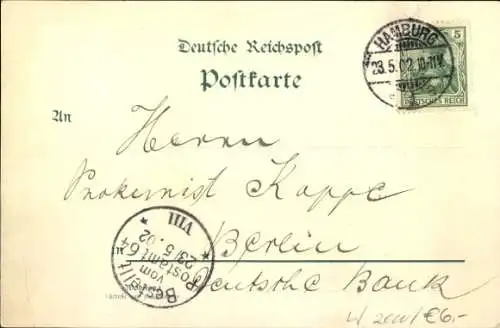 Deutsche Reichspost
Postkarte
HAMBURG
23.5.02.10-11V.
5
DEUTSCHES REICH
An
Herrn
Prokurist Kappe
in
Berlin
Deutsche Bank
Bestellt
vom
Postamt 64
23/5.02
VIII
€6,-